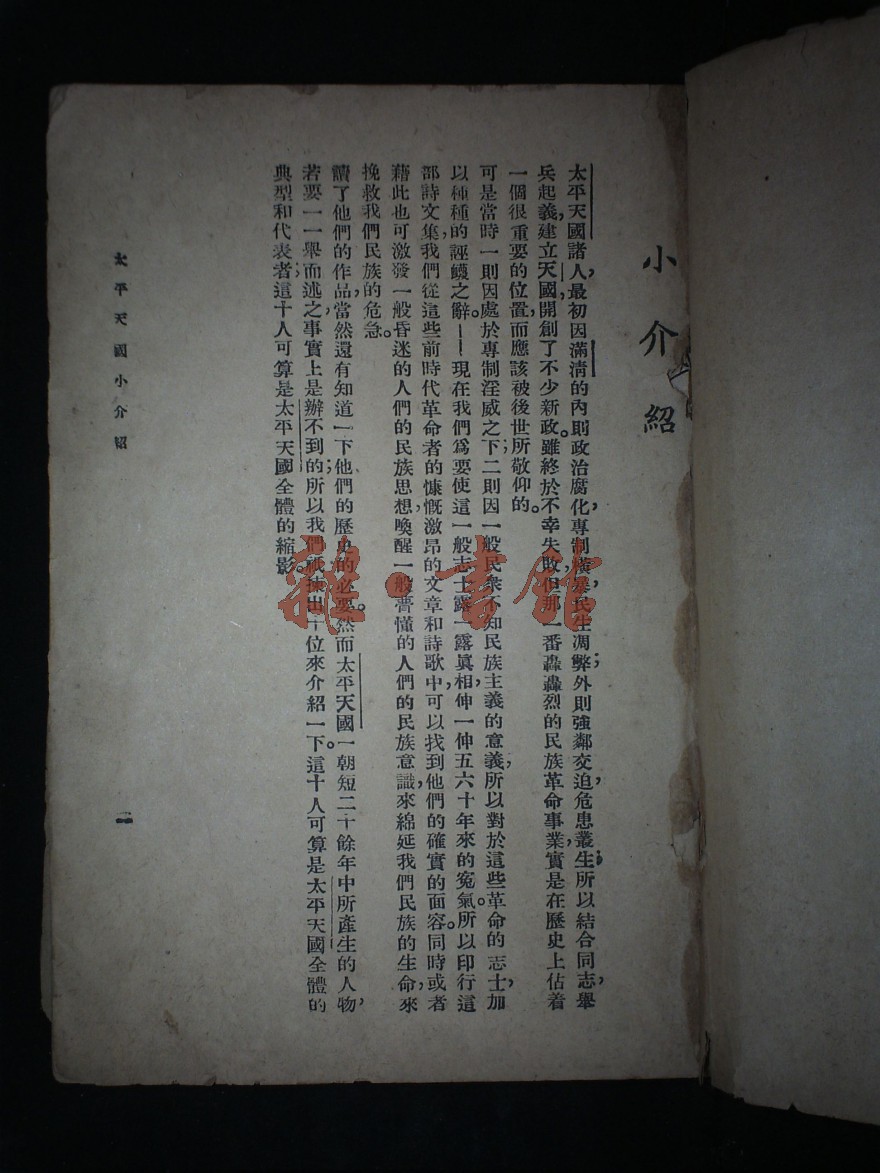 小介紹
太平天國諸人，最初因滿清的內則政治腐化，專制橫暴，民生凋弊；外則強鄰交迫，危患叢生；所以結合同志，舉
兵起義，建立天國，開創了不少新政。雖終於不幸失敗，但那一番轟轟烈的民族革命事業，實是在歷史上佔着
一個很重要的位置，而應該被後世所敬仰的。
可是當時一則因處於專制淫威之下；二則因一般民衆不知民族主義的意義，所以對於這些革命的志士，加
以種種的誣衊之辭。——現在我們爲要使這一般志士露一露眞相，伸一伸五六十年來的寃氣。所以印行這
部詩文集，我們從這些前時代革命者的慷慨激昂的文章和詩歌中，可以找到他們的確實的面容。同時或者
藉此也可激發一般昏迷的人們的民族思想，喚醒一般懵懂的人們的民族意識，來綿延我們民族的生命，來
挽救我們民族的危急。
讀了他們的作品，當然還有知道一下他們的歷史的必要。然而太平天國一朝短二十餘年中所產生的人物，
若要一一舉而述之，事實上是辦不到的；所以我們祇揀出十位來介紹一下。這十人可算是太平天國全體的
典型和代表者；這十人可算是太平天國全體的縮影。
太平天國小介紹
一
雜·書館